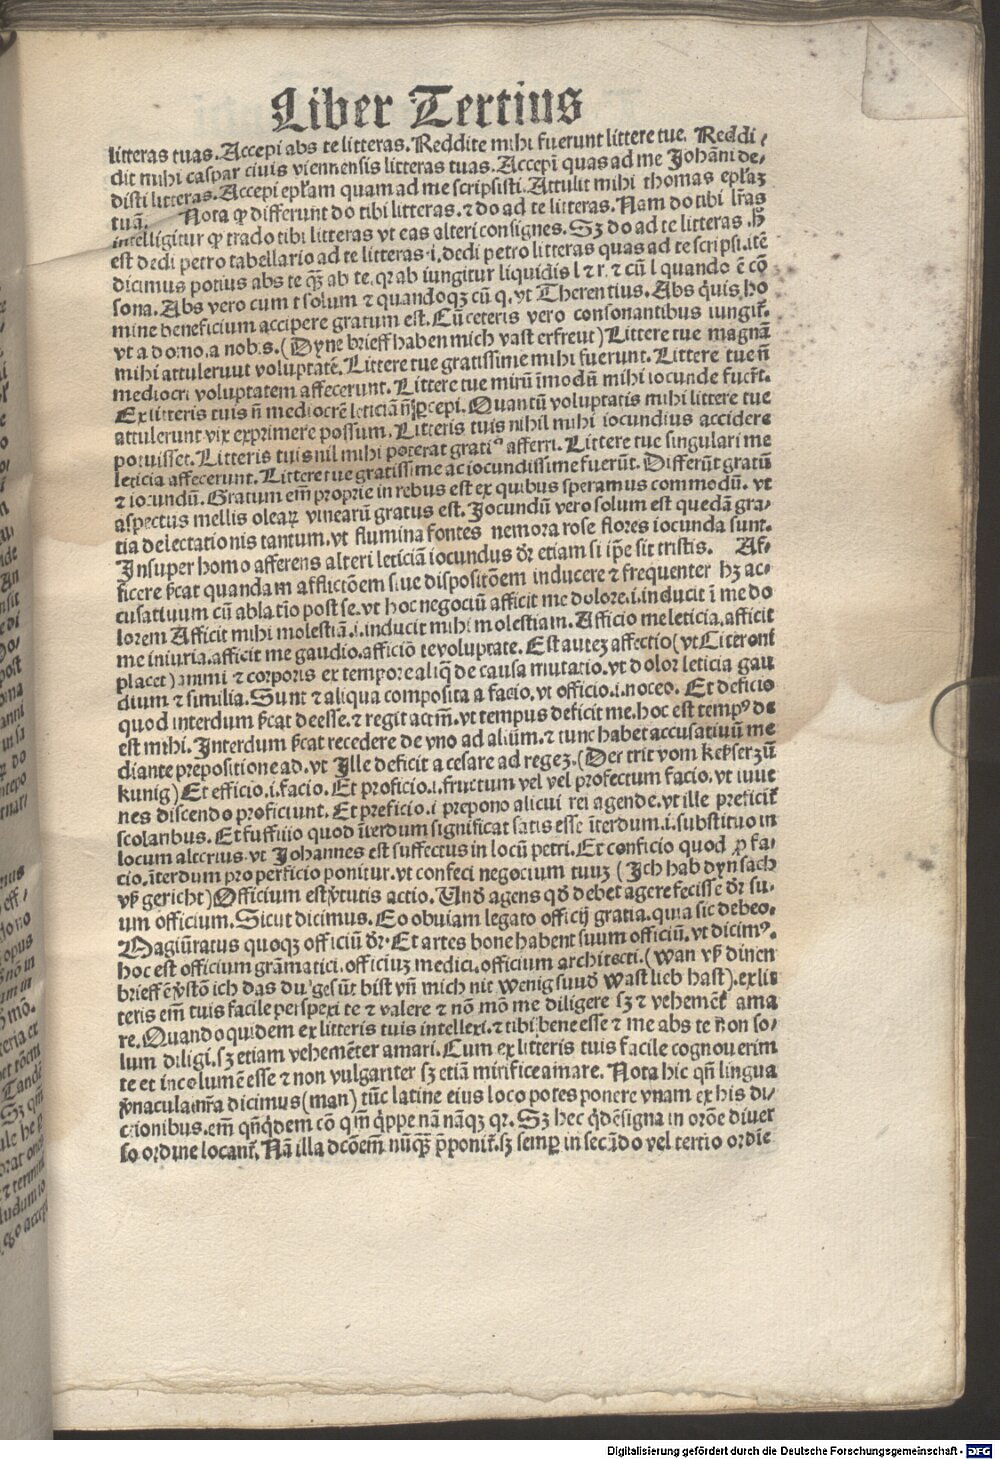 Liber Tertius
litteras tuas. Accepi abs te litteras. Reddite mihi fuerunt littere tue. Reddi⸗
dit mihi caspar ciuis viennensis litteras tuas. Accepi quas ad me Johāni de⸗
disti litteras. Accepi epl̄am quam ad me scripsisti. Attulit mihi thomas epl̄aꝫ
tuā. Nota ꝙ differunt do tibi litteras. ⁊ do ad te litteras. Nam do tibi lr̄as
intelligitur ꝙ trado tibi litteras vt eas alteri consignes. Sꝫ do ad te litteras.
est dedi petro tabellario ad te litteras .i. dedi petro litteras quas ad te scripsi. itē
dicimus potius abs te ꝙ̄ ab te. qꝛ ab iungitur liquidis l ⁊ r. ⁊ cū l quando ē cō
sona. Abs vero cum t solum ⁊ quandoqꝫ cū q. vt Therentius. Abs q̇uis ho
mine beneficium accipere gratum est. Cū ceteris vero consonantibus iungit̄.
vt a domo. a nobis. (Dyne brieff haben mich vast erfreut) Littere tue magnā
mihi attulerunt voluptatē. Littere tue gratissime mihi fuerunt. Littere tue n̄
mediocri voluptatem affecerunt. Littere tue mirū īmodū mihi iocunde fuer̄t.
Ex litteris tuis n̄ mediocrē leticiā ꝑcepi. Quantū voluptatis mihi littere tue
attulerunt vix exprimere possum. Litteris tuis nihil mihi iocundius accidere
potuisset. Litteris tuis nil mihi poterat gratiꝰ afferri. Littere tue singulari me
leticia affecerunt. Littere tue gratissime ac iocundissime fuerūt. Differūt gratū
⁊ iocundū. Gratum em̄ proprie in rebus est ex quibus speramus commodū. vt
aspectus mellis oleaꝝ vinearū gratus est. Jocundū vero solum est quedā gra⸗
tia delectationis tantum. vt flumina fontes nemora rose flores iocunda sunt.
Insuper homo afferens alteri leticiā iocundus dr̄ etiam si ip̄e sit tristis. Af⸗
ficere p̄cat quandam afflictōem siue dispositōem inducere ⁊ frequenter hꝫ ac⸗
cusatiuum cū ablatio post se. vt hoc negociū afficit me dolore .i. inducit ī me do
lorem Afficit mihi molestiā .i. inducit mihi molestiam. Afficio me leticia. afficit
me iniuria. afficit me gaudio. afficiō te voluptate. Est autez affectio (vt Ciceroni
placet) animi ⁊ corporis ex tempore aliq̄ de causa mutatio. vt dolor leticia gau
dium ⁊ similia. Sunt ⁊ aliqua composita a facio. vt officio .i. noceo. Et deficio
quod interdum p̄cat deesse. ⁊ regit actm̄. vt tempus deficit me. hoc est tempꝰ de
est mihi. Interdum p̄cat recedere de vno ad aliū. ⁊ tunc habet accusatiuū me
diante prepositione ad. vt Ille deficit a cesare ad regeꝫ. (Der trit vom keyser zū
kunig) Et efficio .i. facio. Et proficio .i. fructum vel vel profectum facio. vt iuue
nes discendo proficiunt. Et preficio .i. prepono alicui rei agende. vt ille preficit̄
scolaribus. Et suffitio quod īterdum significat satis esse īterdum .i. substituo in
locum alterius. vt Johannes est suffectus in locū petri. Et conficio quod ꝓ fa⸗
cio. īterdum pro perficio ponitur. vt confeci negocium tuuꝫ (Ich hab dyn sach
vß gericht) Officium est v̓tutis actio. Und̄ agens qd̄ debet agere fecisse dr̄ su⸗
um officium. Sicut dicimus. Eo obuiam legato officij gratia. quia sic debeo.
Magiūratus quoqꝫ officiū dr̄. Et artes bone habent suum officiū. vt dicimꝰ.
hoc est officium grāmatici. officiuꝫ medici. officium architecti. (Wan vß dinen
brieff ē v̓stō ich das du gesūt bist vn̄ mich nit wenig sund̄ wast lieb hast). ex lit⸗
teris em̄ tuis facile perspexi te ⁊ valere ⁊ nō mō me diligere sꝫ ⁊ vehemēt̄ ama
re. Quandoquidem ex litteris tuis intellexi. ⁊ tibi bene esse ⁊ me abs te non so⸗
lum diligi. sꝫ etiam vehemēter amari. Cum ex litteris tuis facile cognouerim
te et incolumē esse ⁊ non vulgariter sꝫ etiā mirifice amare. Nota hic qn̄ lingua
v̓nacula nr̄a dicimus (man) tūc latine eius loco potes ponere vnam ex his di⸗
ctionibus. em̄ qn̄q̇dem cō qm̄ q̇ppe nan nāqꝫ qꝛ. Sꝫ hec q̇dē signa in orōe diuer
so ordine locant̄. Nā illa dcōem̄ nūq̄ꝫ p̄ponit̄. sꝫ semꝑ in secūdo vel tertio ordīe
Digitalisierung gefördert durch die Deutsche Forschungsgemeinschaft - DFG